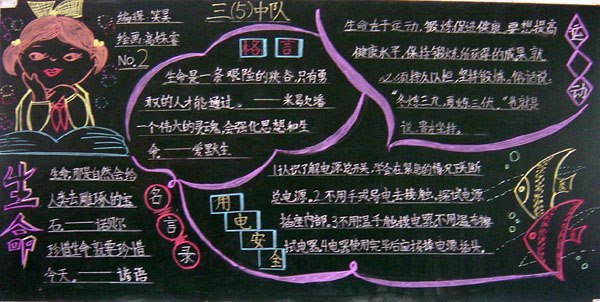 三(5)中队
编辑:笑昊
绘画:高姝睿
No.2
格言
生命是一条艰险的狭谷,只有勇
敢的人才能通过。——米歇尔潘
一个伟大的灵魂,会强化思想和生
命。——爱默生
运动
生命在于运动,锻炼促进健康。要想提高
健康水平,保持锻炼所获得的成果,就
必须持之以恒,坚持锻炼。俗话说:
“冬炼三九,夏炼三伏。”
说,贵在坚持。
生命
生命,那是自然会给
人类去雕琢的宝
石。——诺贝尔
珍惜生命就要珍惜
今天。——谚语
名言录
用电安全
1.认识了解电源总开关,学会在紧急的情况下关断
总电源。2.不用手或导电去接触、探试电源
插座内部。3.不用湿手触摸电器,不用湿布擦
拭电器。4.电器使用完毕后应拔掉电源插头。